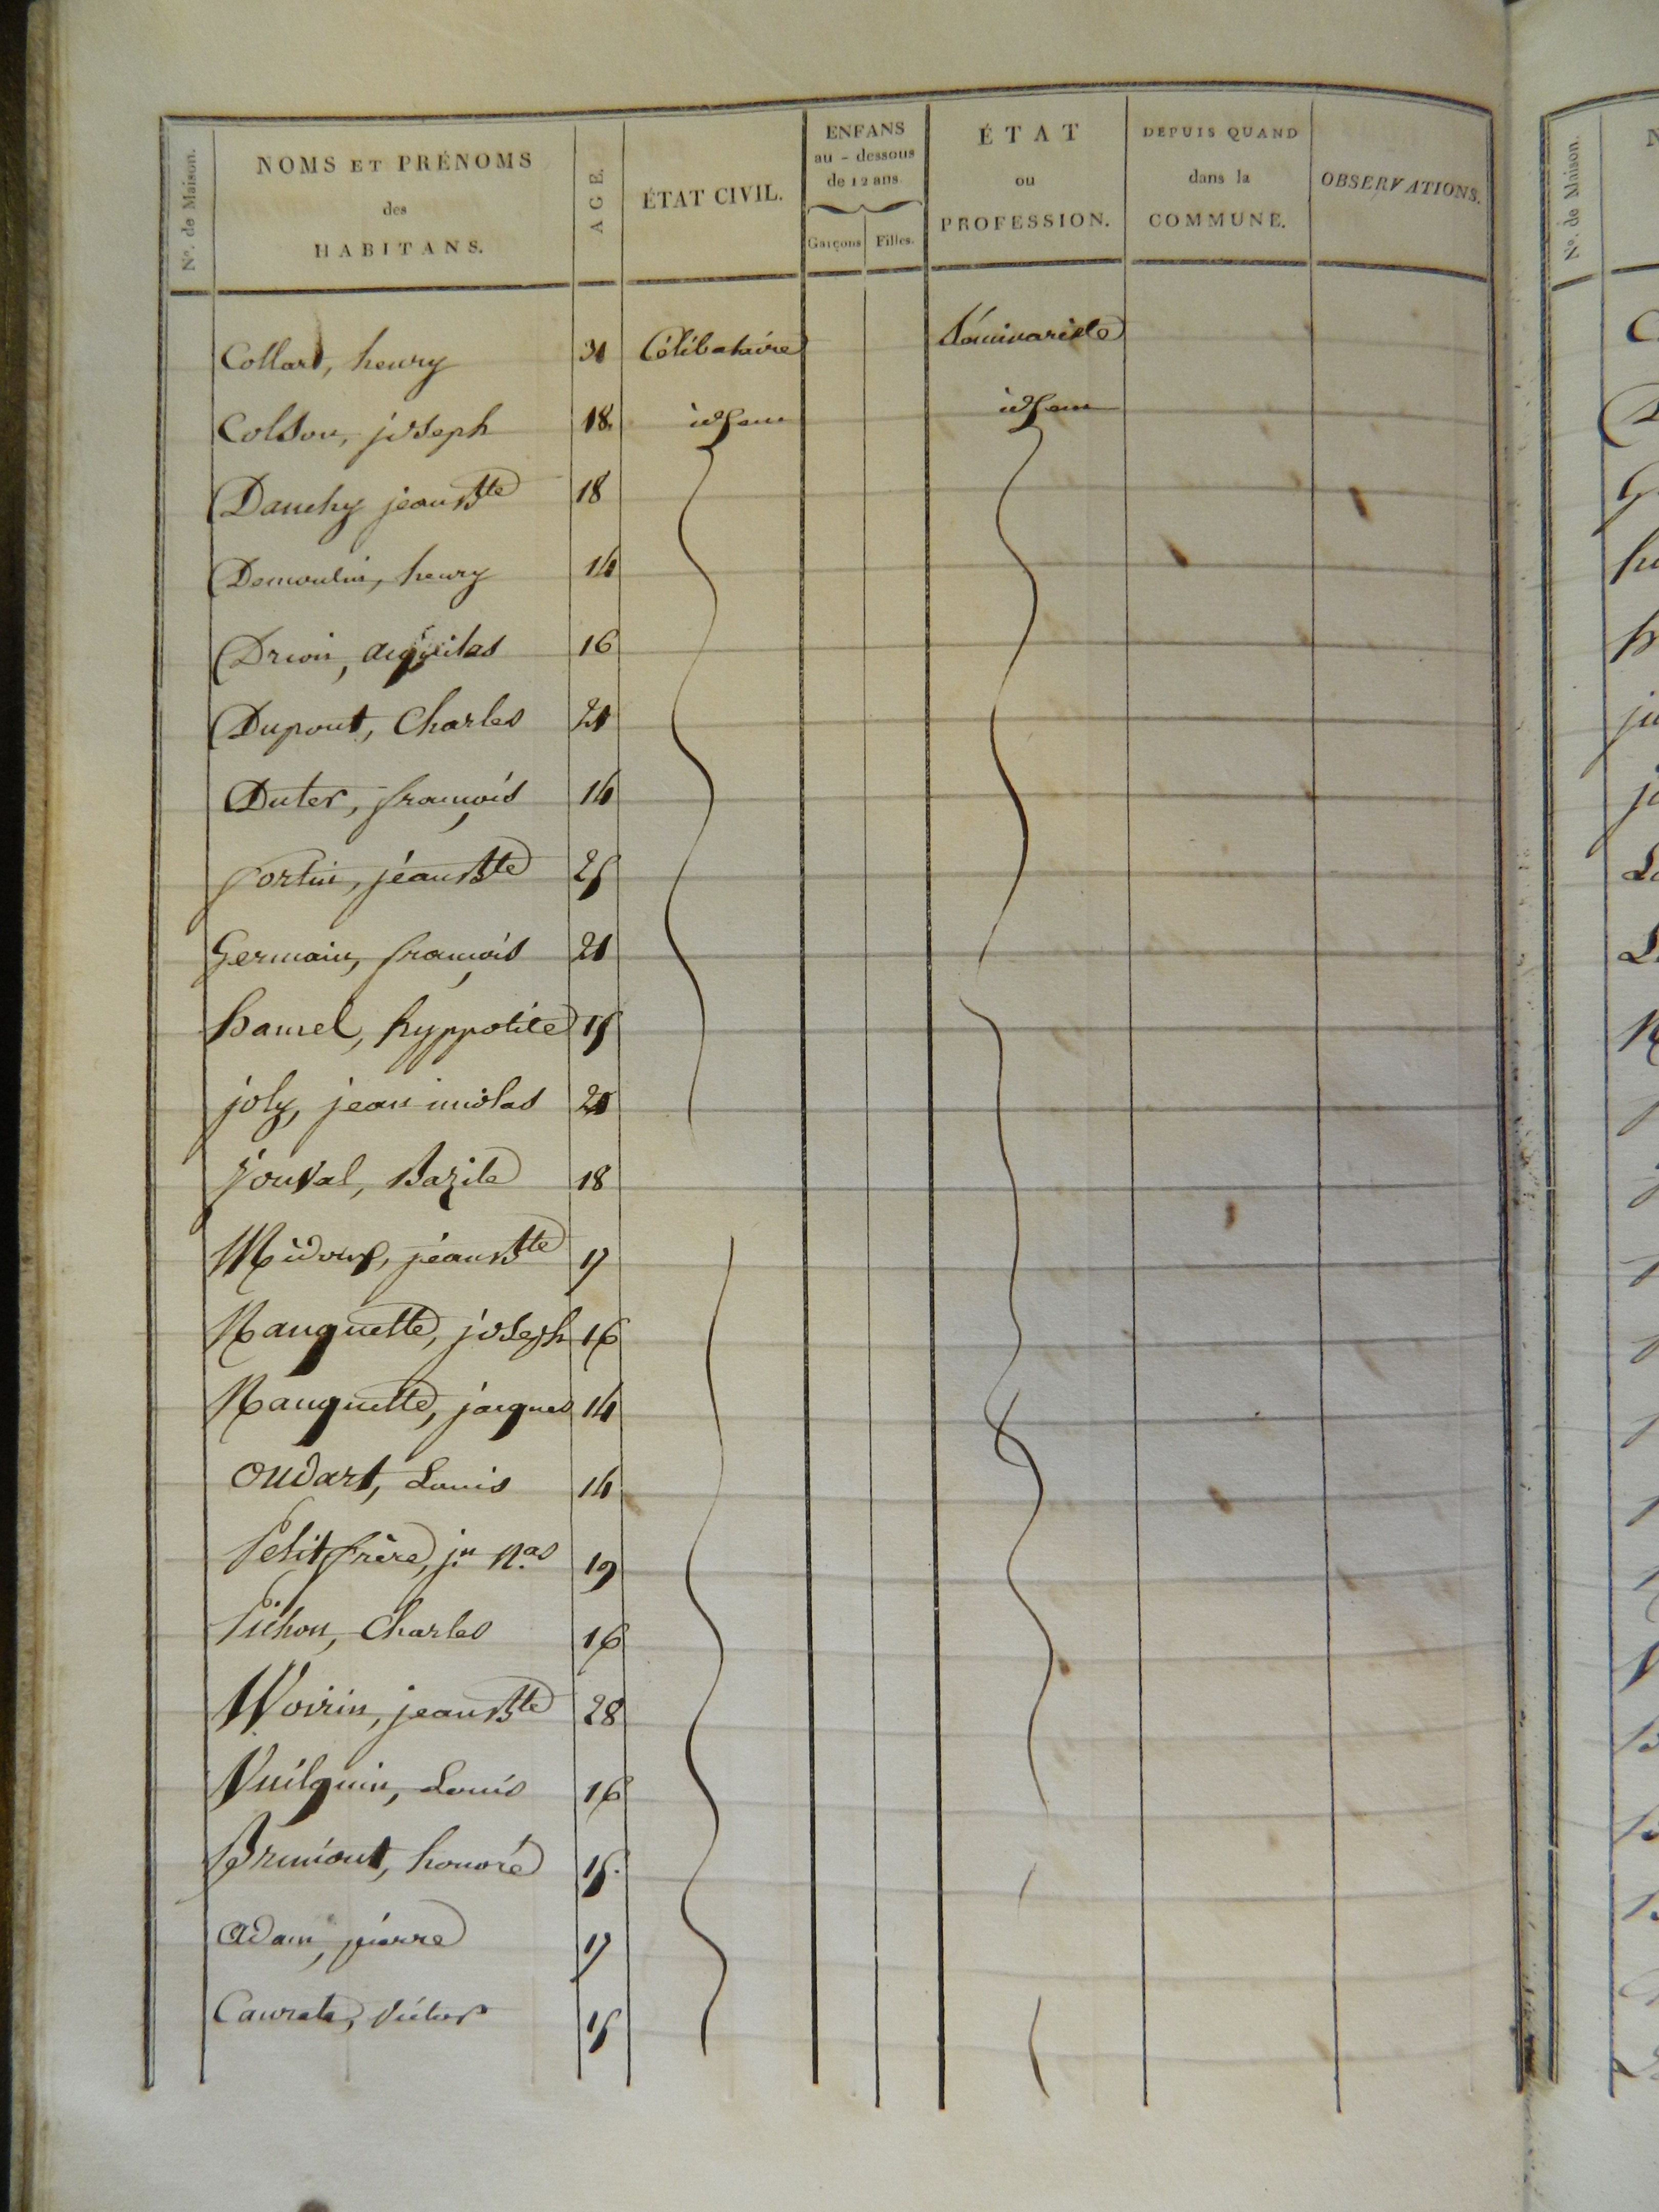 N.º de Maison.
NOMS ET PRÉNOMS
des
HABITANS.
AGE.
ÉTAT CIVIL.
ENFANS
au-dessous
de 12 ans
Garçons Filles.
ÉTAT
ou
PROFESSION.
DEPUIS QUAND
dans la
COMMUNE.
OBSERVATIONS.
Collart, henry Célibataire Séminariste
Colson, joseph 18 idem idem
Dauchy jean Bte 18
Demoulin, henry 14
Drion, 16
Dupont, Charles 21
Duter, françois 14
fortin, jean Bte 25
Germain, françois 21
hamel, hyppolite 15
joly, jean nicolas 20
jouval, Bazile 18
Midoux, jean Bte 17
Nanquette, joseph 16
Nanquette, jacques 14
Oudart, Louis 14
Petitfrère, jn Nas 19
Pichon, Charles 16
Woirin, jean Bte 28
Vuilquin, Louis 16
Brimont, honoré 15.
Adam, pierre 17
Caurette, Victor 15
N.º de Maison.